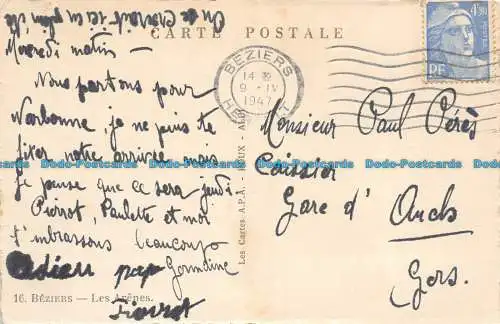 On se croirait ici en plein été
CARTE POSTALE
Mercredi matin -
Nous partons pour
Narbonne, je ne puis te
fixer notre arrivée mais
je pense que ce sera jeudi
Pierrot, Paulette et moi
t'embrassons beaucoup
Germaine
Adieu papa
Pierrot
16. BÉZIERS — Les Arênes.
Les Cartes A.P.A.
BÉZIERS
14 H
9 - IV
1947
HERAULT
4F,50
Monsieur Paul Pérès
Caissier
Gare d' Auch
Gers.
Dodo-Postcards Dodo-Postcards Dodo-Postcards Dodo-Postcards Dodo-Postcards